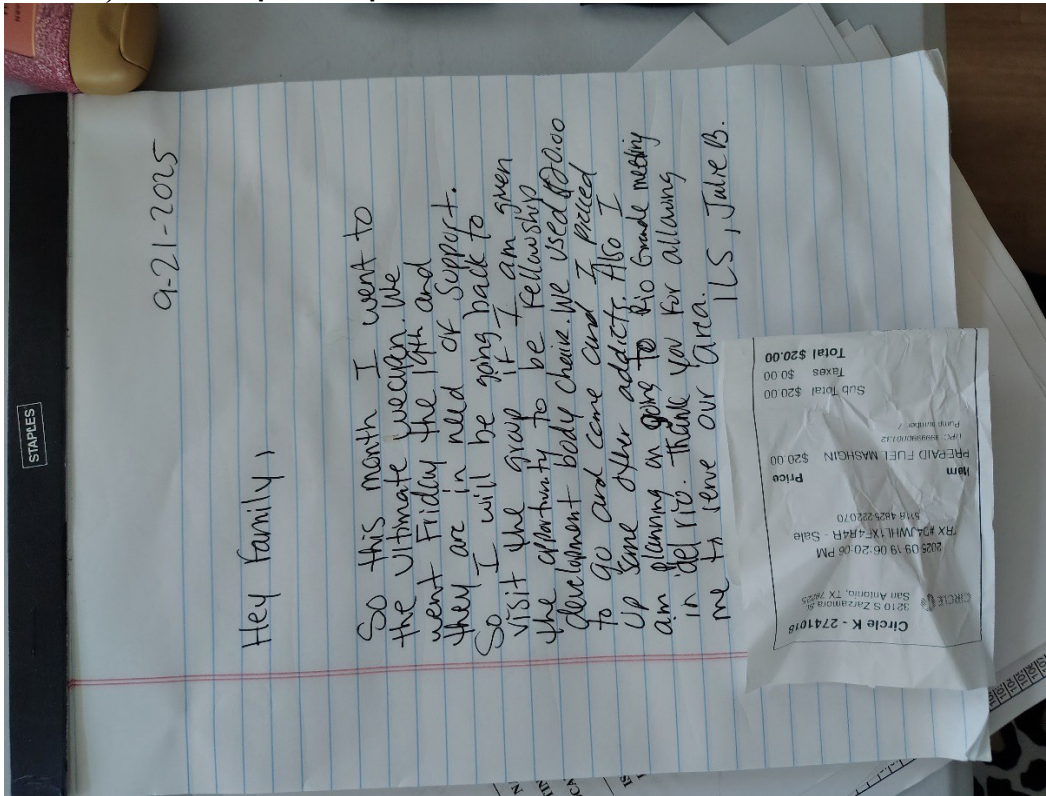 STAPLES
9-21-2025
Hey Family,
So this month I went to
the Ultimate weapon. We
went Friday the 19th and
they are in need of support.
So I will be going back to
visit the group if I am given
the opportunity to be Fellowship
development body chair. We used $20.00
to go and come and I picked
up some other addicts. Also I
am planning on going to Rio Grande meeting
in del rio. Thank you for allowing
me to serve our area.
ILS, Julie B.
Circle K - 2741018
CIRCLE K
3210 S Zarzamora St
San Antonio, TX 78225
2025 09 19 06:20:06 PM
TRX #34JWHL1XF4R4R - Sale
5118 4825-222070
Item Price
PREPAID FUEL MASHGIN $20.00
Pump number: 7
Sub Total $20.00
Taxes $0.00
Total $20.00